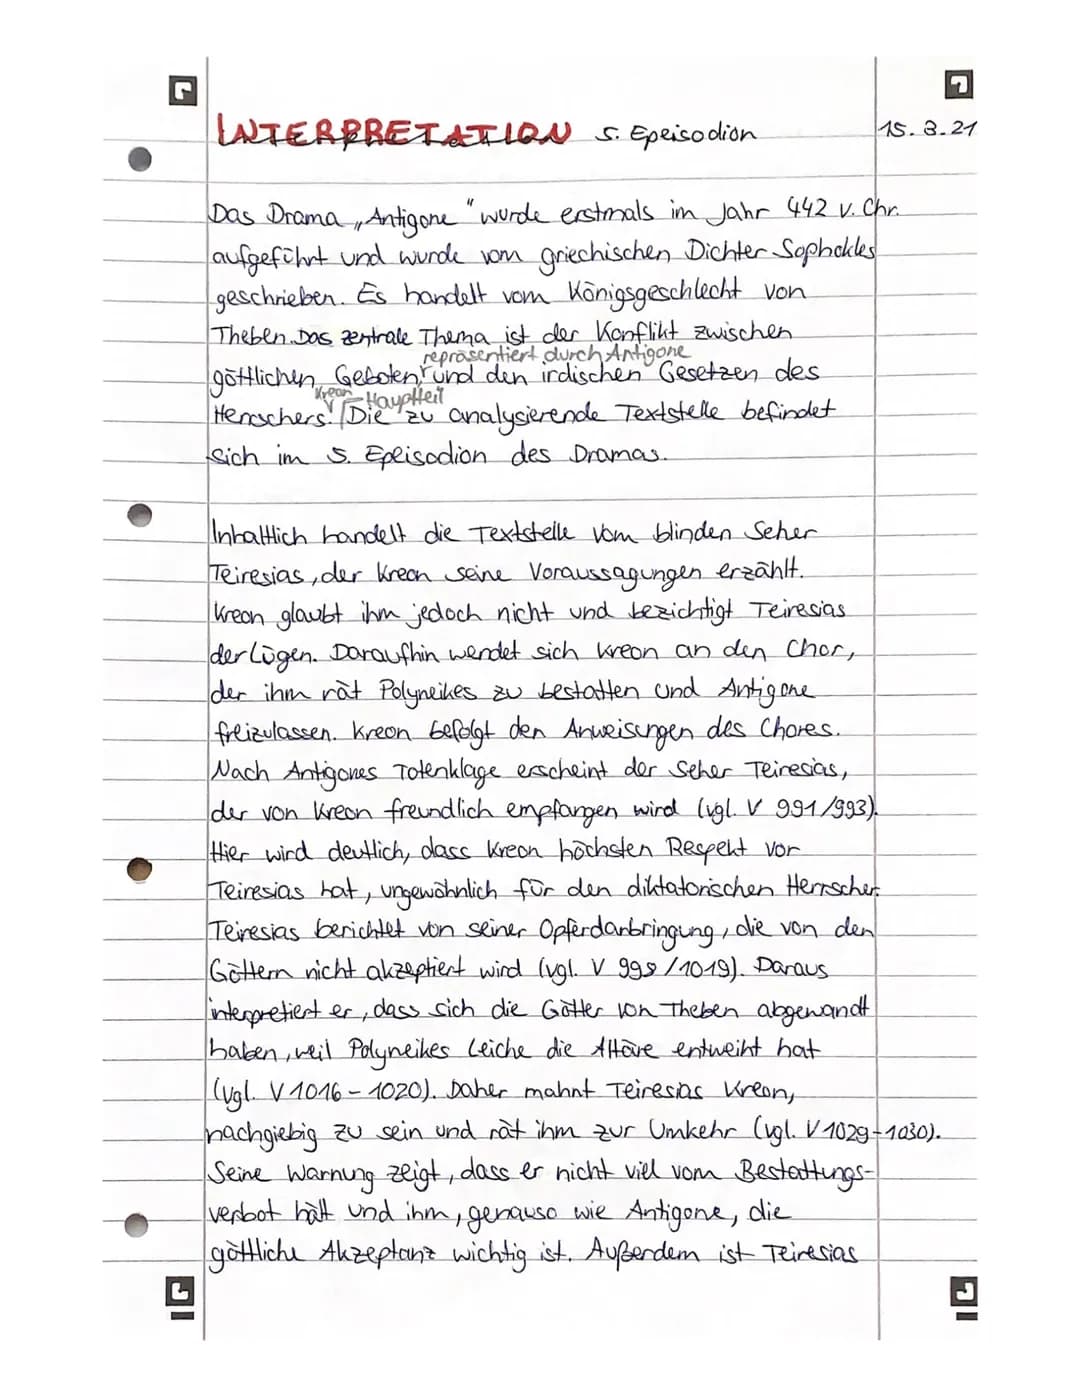 INTERPRETATION 5. Epeisodion 15.3.21
Das Drama „Antigone“ wurde erstmals im Jahr 442 v. Chr.
aufgeführt und wurde vom griechischen Dichter Sophokles
geschrieben. Es handelt vom Königsgeschlecht von
Theben. Das zentrale Thema ist der Konflikt zwischen
repräsentiert durch Antigone
göttlichen Geboten und den irdischen Gesetzen des
Kreon Hauptteil
Herrschers. Die zu analysierende Textstelle befindet
sich im 5. Epeisodion des Dramas.
Inhaltlich handelt die Textstelle vom blinden Seher
Teiresias, der Kreon seine Voraussagungen erzählt.
Kreon glaubt ihm jedoch nicht und bezichtigt Teiresias
der Lügen. Daraufhin wendet sich Kreon an den Chor,
der ihm rät Polyneikes zu bestatten und Antigone
freizulassen. Kreon befolgt den Anweisungen des Chores.
Nach Antigones Totenklage erscheint der Seher Teiresias,
der von Kreon freundlich empfangen wird (vgl. V 991/993).
Hier wird deutlich, dass Kreon höchsten Respekt vor
Teiresias hat, ungewöhnlich für den diktatorischen Herrscher.
Teiresias berichtet von seiner Opferdarbringung, die von den
Göttern nicht akzeptiert wird (vgl. V 998/1019). Daraus
interpretiert er, dass sich die Götter von Theben abgewandt
haben, weil Polyneikes Leiche die Altäre entweiht hat
(vgl. V 1016-1020). Daher mahnt Teiresias Kreon,
nachgiebig zu sein und rät ihm zur Umkehr (vgl. V 1029-1030).
Seine Warnung zeigt, dass er nicht viel vom Bestattungs-
verbot hält und ihm, genauso wie Antigone, die
göttliche Akzeptanz wichtig ist. Außerdem ist Teiresias